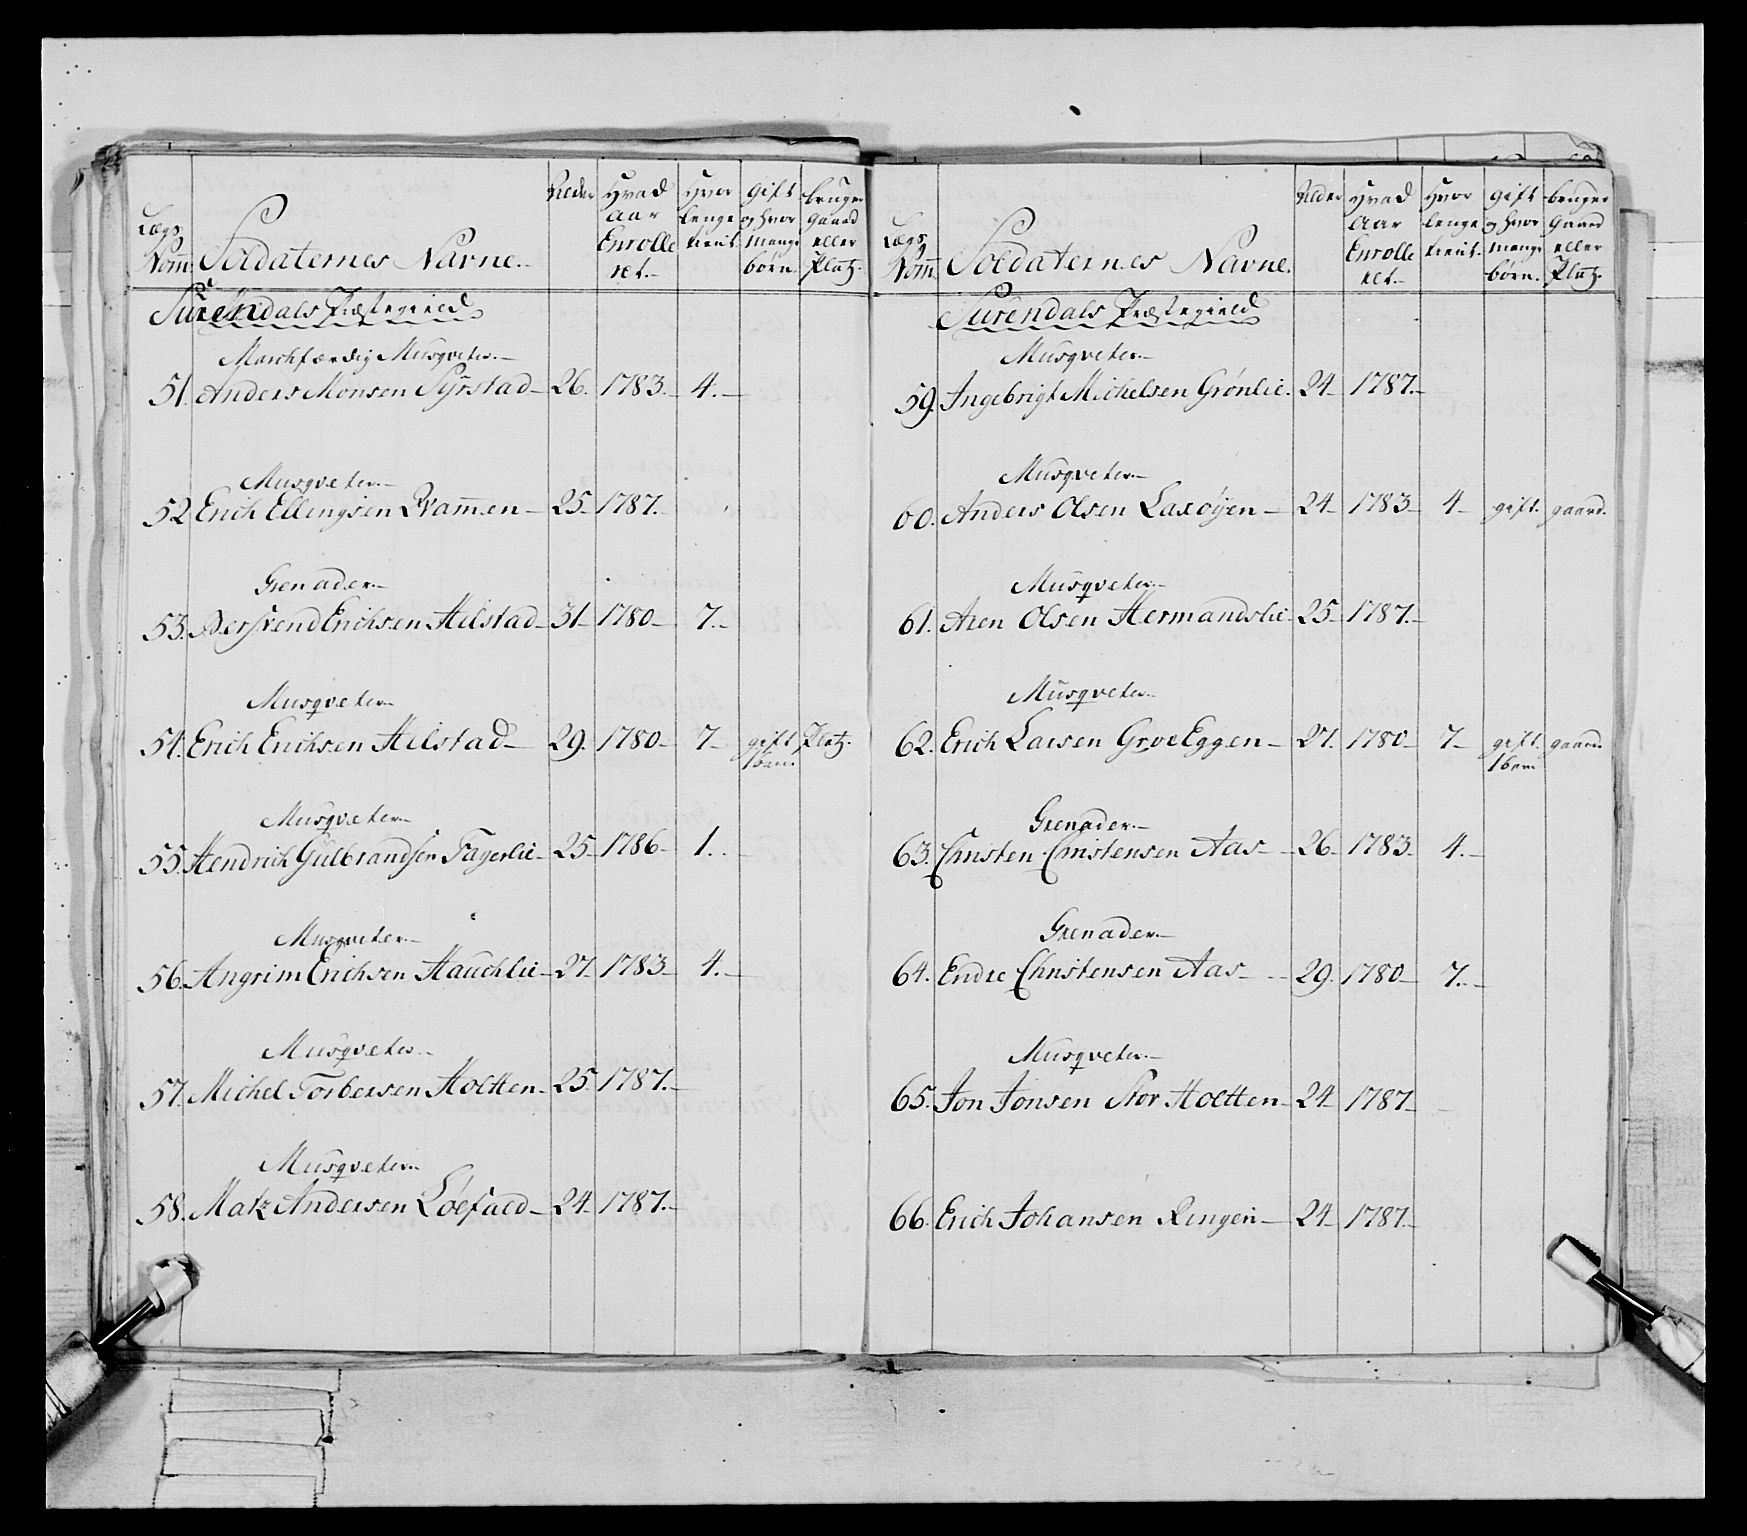 Lægs Nom: Soldaternes Navne. Alder Hvad Aar Enrolleret. Hvor lenge tient. gift og hvor mange børn. bruger gaard eller Platz.
Surendals Præstegield
Marchfærdig Musqveter.
51. Anders Monsen Syrstad 26. 1783. 4.
Musqveter.
52 Erich Ellingsen Qvammen 25 1787.
Grenader.
53. Bersvend Erichsen Helstad 31 1780 7.
Musqveter
54. Erich Erichsen Helstad 29. 1780 7 gift Platz.
1 barn.
Musqveter
55. Hendrich Gulbrandsen Fagerlie 25 1786 1.
Musqveter
56. Angrim Erichsen Hauchlie 27. 1783 4.
Musqveter.
57. Michel Torbersen Holtten 25 1787.
Musqveter.
58. Matz Andersen Løefald 24 1787.
Lægs Nom. Soldaternes Navne. Alder Hvad Aar Enrolleret. Hvor lenge tient. gift og hvor mange børn. bruger gaard eller Platz.
Surendals Præstegield
Musqveter.
59. Ingebrigt Michelsen Grønlie. 24 1787.
Musqveter.
60. Anders Olsen Laxøyen 24 1783 4 gift. gaard.
Musqveter.
61. Aren Olsen Hermandslie 25 1787.
Musqveter.
62. Erich Larsen GroeEggen 27. 1780 7 gift. gaard.
1 barn
Grenader.
63. Christen Christensen Aas 26 1783 4.
Grenader.
64. Endre Christensen Aas 29. 1780 7.
Musqveter.
65. Jon Jonsen Stor Holtten 24 1787
66. Erich Johansen Ringen 24 1787.